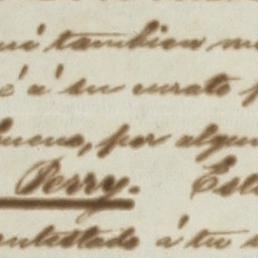 tambien
é á su curato
bueno, por algun
Perry. Est
contestado á tu